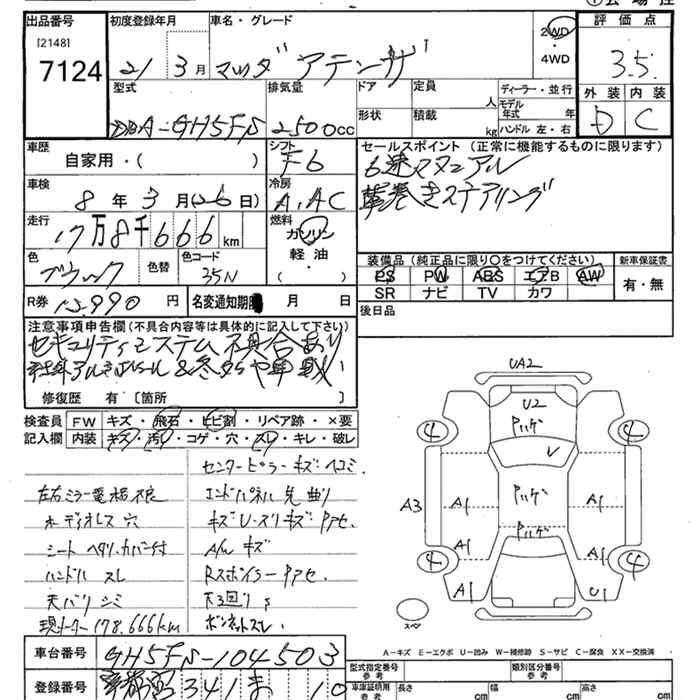 出品番号 初度登録年月 車名・グレード 2WD 評価点
[2148] 4WD
7124 21 3月 マツダ アテンザ 3.5
外装 内装
D C
型式 排気量 ドア 定員 人 ディーラー・並行
モデル年式 年
DBA-GH5FS 2500cc 形状 積載 kg ハンドル 左・右
車歴 シフト セールスポイント (正常に機能するものに限ります)
自家用・( ) F6 6速マニュアル
車検 冷房 革巻きステアリング
8年3月(26日) A.AC
走行 燃料
17万8千666km ガソリン
軽油・
( )
色 色替 色コード 装備品(純正品に限り○をつけてください) 新車保証書
ブラック 35N PS PW ABS エアB AW 有・無
SR ナビ TV カワ
R券 15,990円 名変通知期限 月 日 後日品
注意事項申告欄(不具合内容等は具体的に記入して下さい)
セキュリティシステム不具合あり
修復歴 有〔箇所 〕
検査員 FW キズ・飛石・ヒビ割・リペア跡・×要
記入欄 内装 キズ・汚レ・コゲ・穴・スレ・キレ・破レ
センターピラー キズ・ヘコミ.
左右ミラー電格不良 エンドパネル先曲り
オーディオレス 穴 キズU・スリキズ・Pアセ.
シート ヘタリ.カバー付 A/W キズ
ハンドル スレ Rスポイラー Pアセ.
天バリ シミ
現メーター178.666km ボンネットスレ.
UA2
U2
Pハゲ
4 4
V
A3 A1 Pハゲ A1
Pハゲ
A1 A1
4 4
A1 U1
スペア
A-キズ E-エクボ U-凹み W-補修跡 S-サビ C-腐食 XX-交換済
車台番号 GH5FS-104503
型式指定番号 参考 類別区分番号 参考
登録番号 341 ま 10
車庫証明用 参考 長さ cm 幅 cm 高さ cm